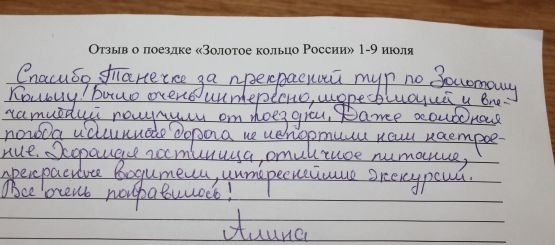 Отзыв о поездке «Золотое кольцо России» 1-9 июля
Спасибо Танечке за прекрасный тур по Золотому
Кольцу! Было очень интересно, море эмоций и впе-
чатлений получили от поездки. Даже холодная
погода и длинная дорога не испортили нам настрое-
ние. Хорошая гостиница, отличное питание,
прекрасные водители, интереснейшие экскурсии.
Все очень понравилось!
Алина